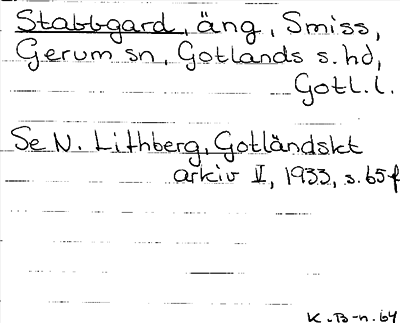 Stabbgard, äng, Smiss,
Gerum sn, Gotlands s. hd,
Gotl. l.
Se N. Lithberg, Gotländskt
arkiv V, 1933, s. 65 f
K. B-n. 64